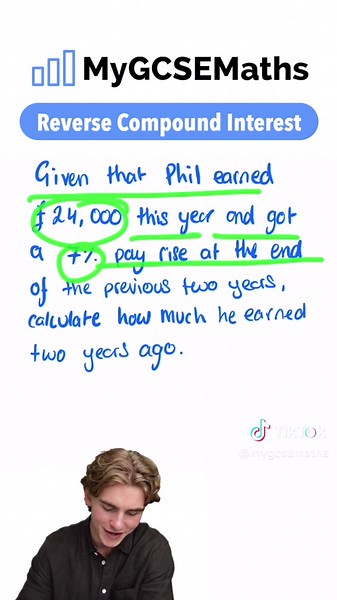 MyGCSEMaths
Reverse Compound Interest
Given that Phil earned
£24,000 this year and got
a 7% pay rise at the end
of the previous two years,
calculate how much he earned
two years ago.
TikTok
@mygcsemaths